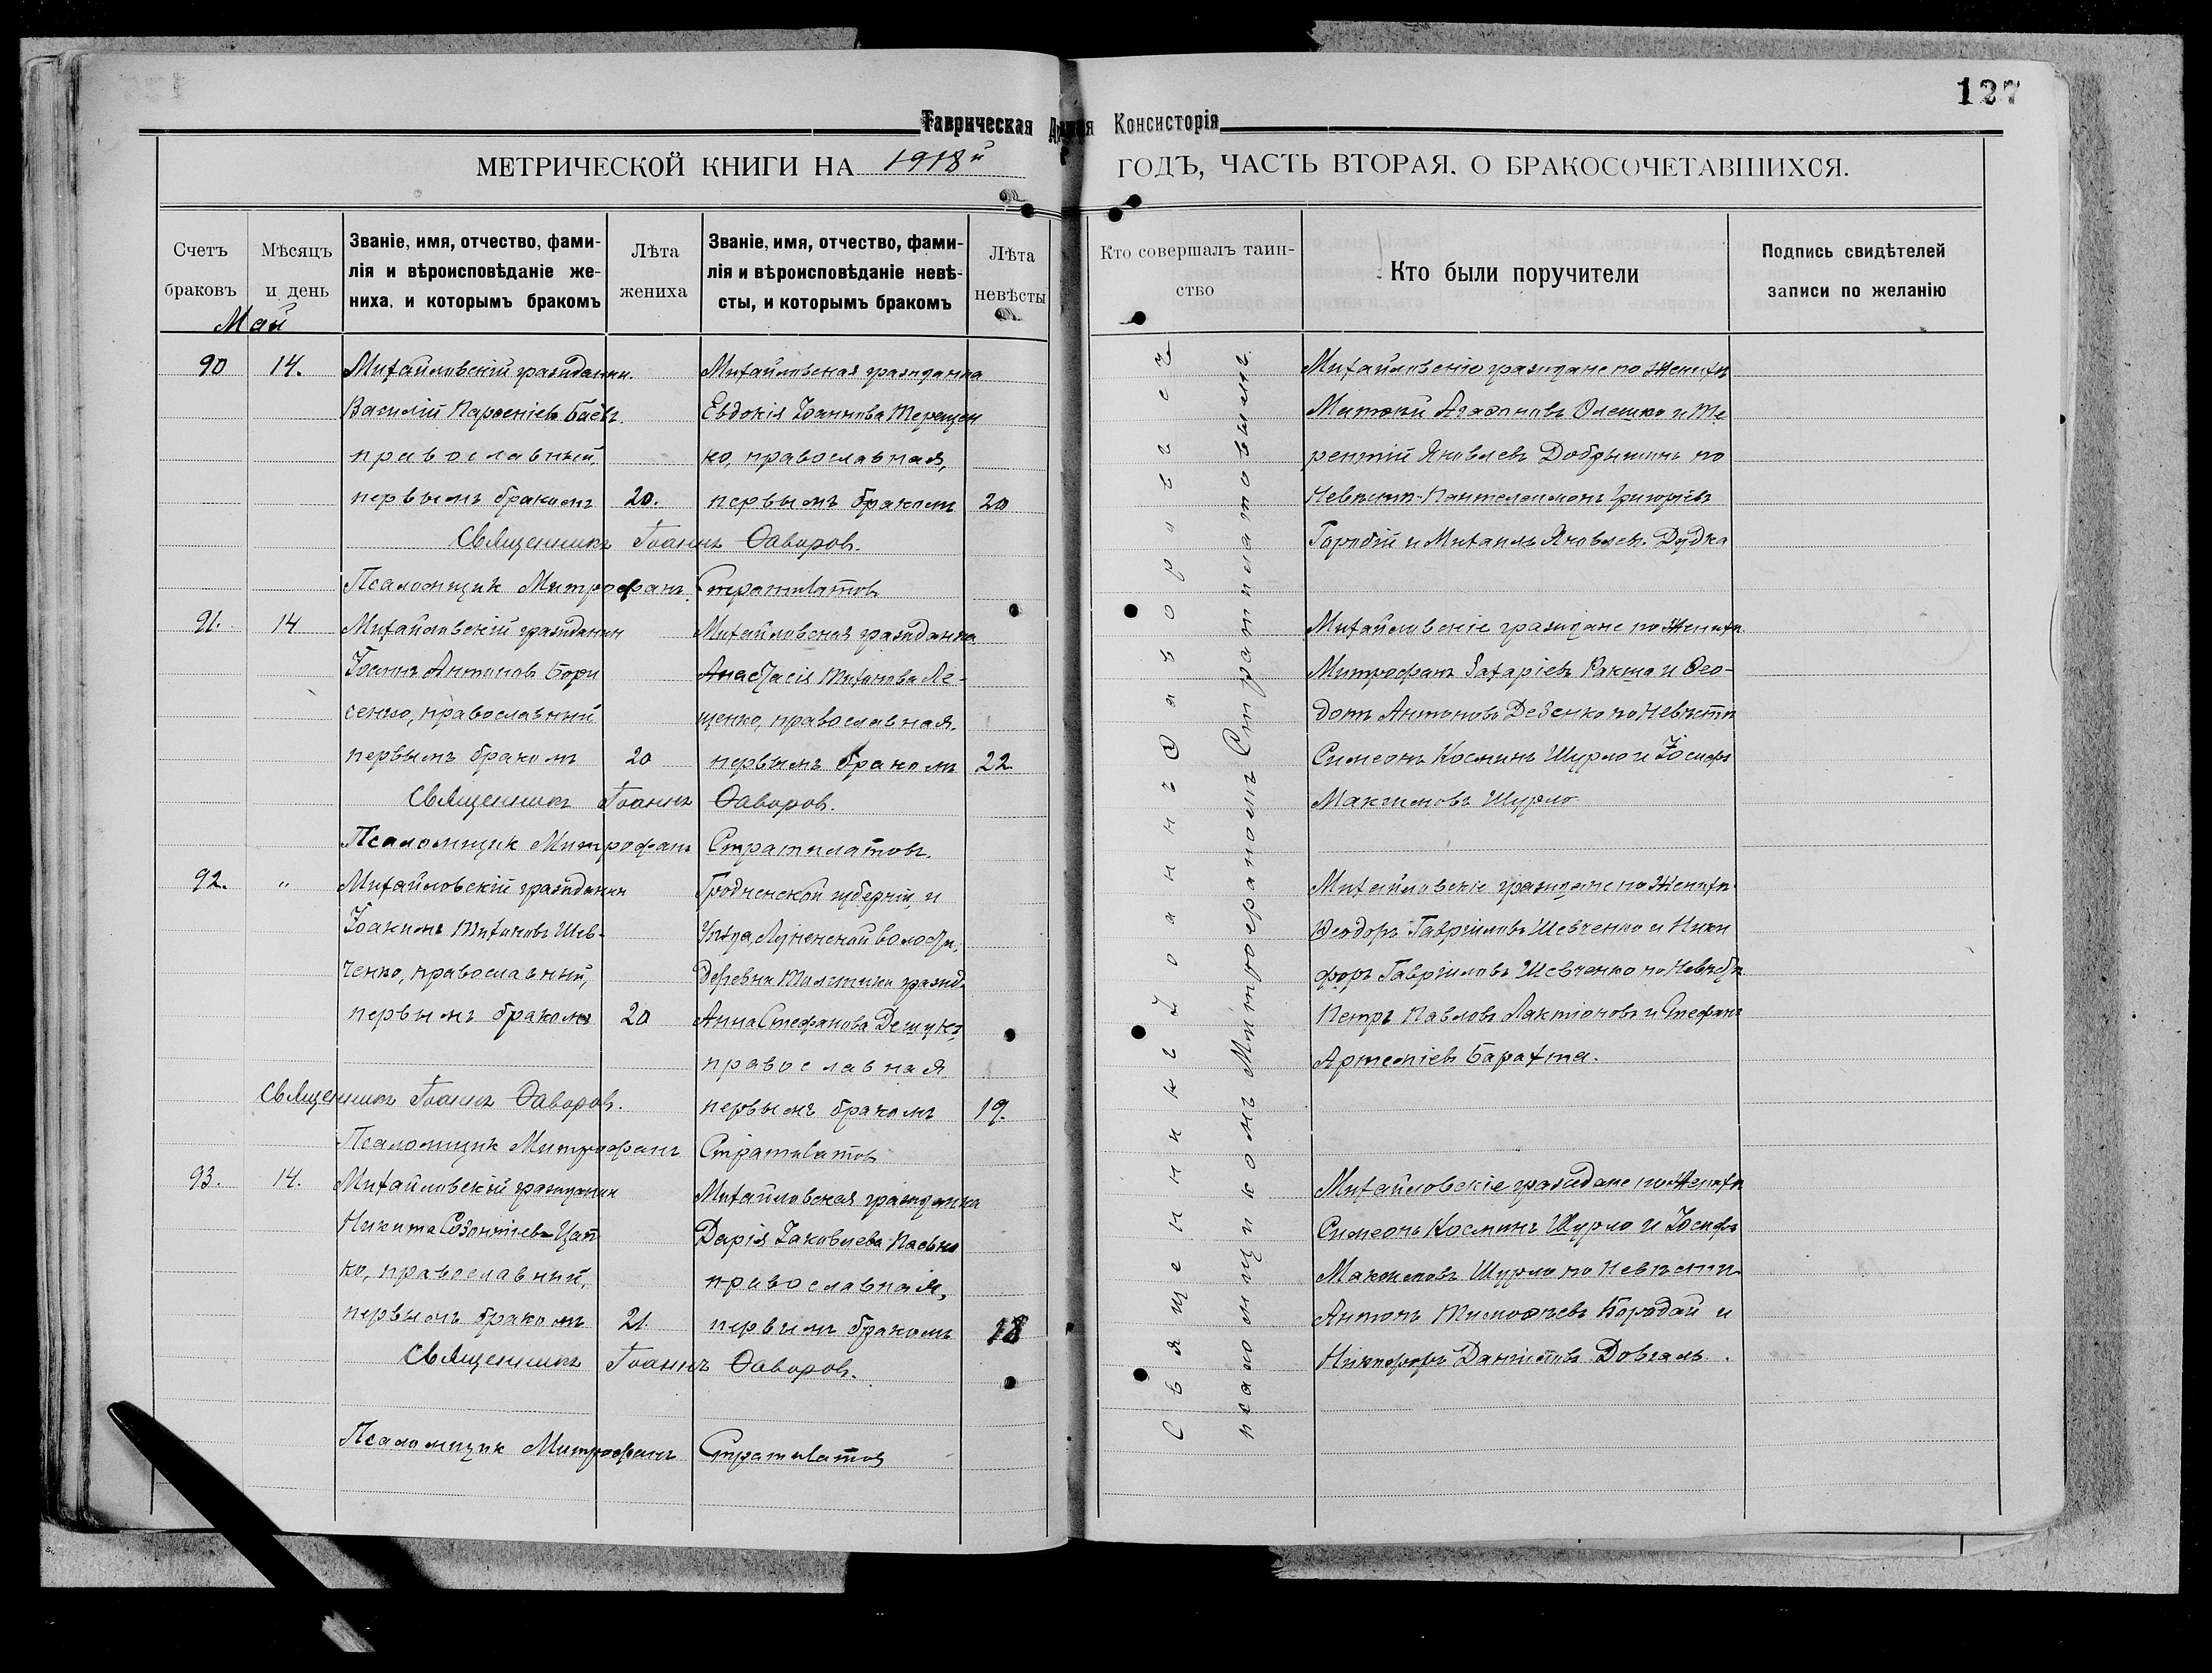 127
Таврическая Консисторія
МЕТРИЧЕСКОЙ КНИГИ НА 1918й ГОДЪ, ЧАСТЬ ВТОРАЯ, О БРАКОСОЧЕТАВШИХСЯ.
Счетъ браковъ
Мѣсяцъ и день
Званіе, имя, отчество, фами-
лія и вѣроисповѣданіе же-
ниха, и которымъ бракомъ
Лѣта жениха
Званіе, имя, отчество, фами-
лія и вѣроисповѣданіе невѣ-
сты, и которымъ бракомъ
Лѣта невѣсты
Кто совершалъ таин-
ство
Кто были поручители
Подпись свидѣтелей
записи по желанію
Май
90 14.
Михайловскій гражданин.
Василій Парѳеніевъ Баёвъ
православный,
первымъ бракомъ 20.
Михайловская гражданка
Евдокія Іоаннова Терещен
ко, православная,
первымъ бракомъ 20
Михайловскіе граждане по Женихѣ
Агаѳоновъ Олешко и Те
рентій Яковлевъ Добрынинъ по
Невѣстѣ - Пантелеимонъ Григорьевъ
и Михаилъ Яковлев. Дудка
Священникъ Іоаннъ Ѳаворов.
Псаломщик Митрофанъ Стратилатовъ
91. 14
Михайловскій гражданин
Іоаннъ Антоновъ Бори
сенко, православный
первымъ бракомъ 20
Михайловская гражданка
Анастасія Титова Ле-
щенко, православная.
первымъ бракомъ 22
Михайловскіе граждане по Женихѣ
Митрофанъ Захаріевъ Ракша и Ѳео-
дотъ Антоновъ Дезенко по Невѣстѣ
Симеонъ Косминъ Шурло и Іосифъ
Максимовъ Шурло
Священникъ Іоаннъ Ѳаворов.
Псаломщик Митрофанъ Стратилатовъ.
92. "
Михайловскій гражданин
Іоакимъ Шев-
ченко, православный,
первымъ бракомъ 20
Гродненской губерніи, и
Уѣзда, Лунненской волости,
Деревни гражд.
Анна Стефанова
православная
первымъ бракомъ 19.
Михайловскіе граждане по Женихѣ
Ѳеодоръ Гавріиловъ Шевченко и Ники
форъ Гавріиловъ Шевченко по Невѣстѣ
Петръ Павловъ Лактіоновъ и Стефанъ
Артеміевъ Барахта.
Священникъ Іоаннъ Ѳаворов.
Псаломщик Митрофанъ Стратилатовъ
93. 14.
Михайловскій гражданин
Никита Созонтіевъ Цап
ко, православный,
первымъ бракомъ 21.
Михайловская гражданка
Дарія Іаковлева
православная,
первымъ бракомъ 18
Михайловскіе граждане по Женихѣ
Симеонъ Косминъ Шурло и Іосифъ
Максимовъ Шурло по Невѣстѣ
Антонъ Тимоѳеевъ Бородай и
Никифоръ Даниловъ Довгаль.
Священникъ Іоаннъ Ѳаворов.
Псаломщик Митрофанъ Стратилатов
Священникъ Іоаннъ Ѳаворовъ съ
псаломщикомъ Митрофаномъ Стратилатовымъ.